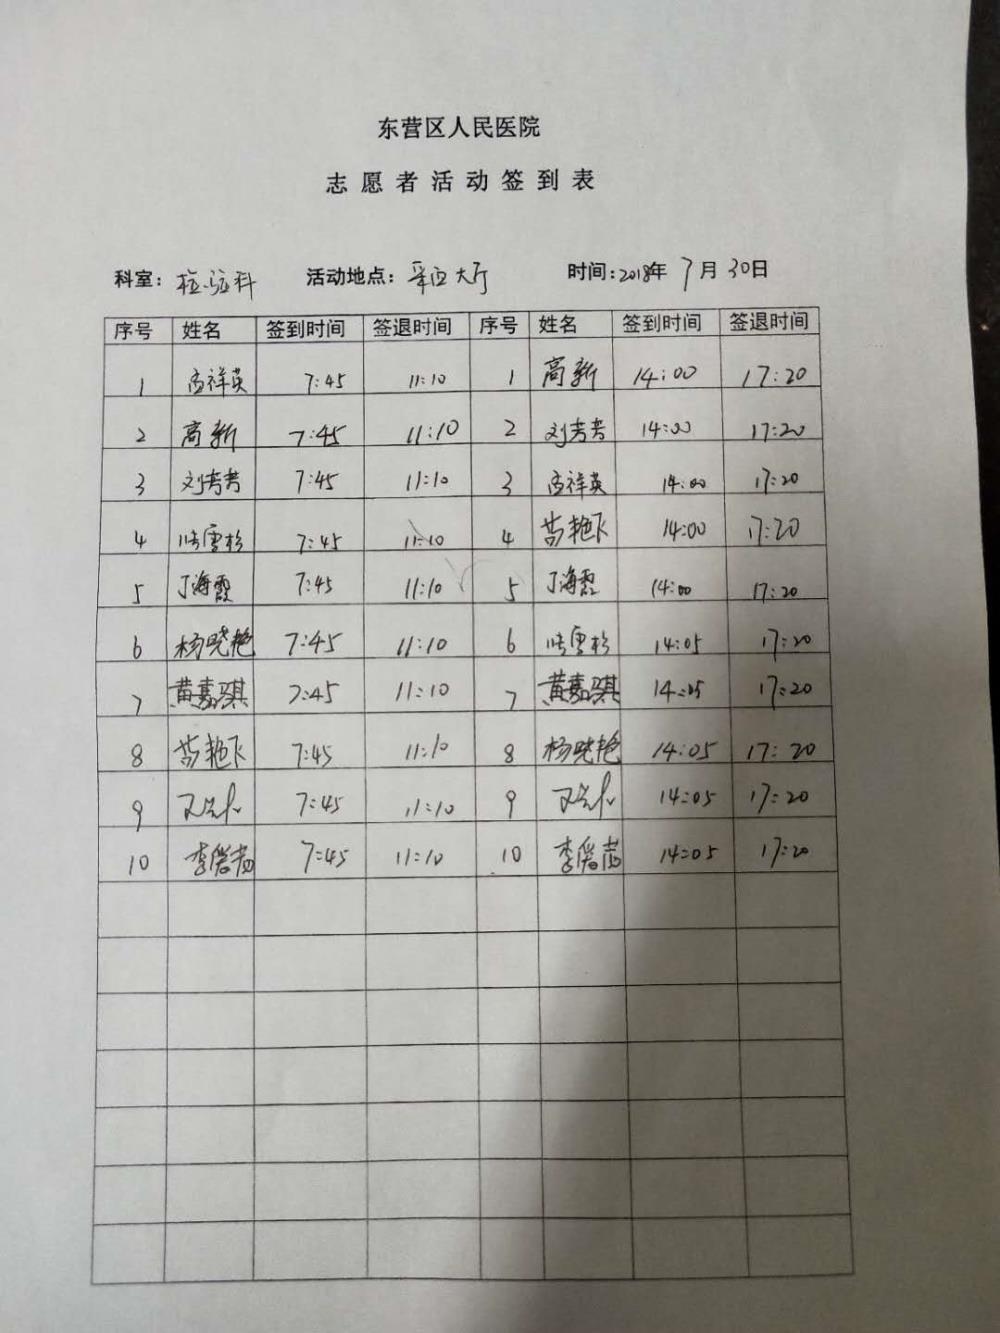 东营区人民医院
志愿者活动签到表
科室：检验科 活动地点：采血大厅 时间：2018年7月30日
序号 姓名 签到时间 签退时间 序号 姓名 签到时间 签退时间
1 孟祥英 7:45 11:10 1 高新 14:00 17:20
2 高新 7:45 11:10 2 刘芳芳 14:00 17:20
3 刘芳芳 7:45 11:10 3 孟祥英 14:00 17:20
4 7:45 11:10 4 14:00 17:20
5 丁海霞 7:45 11:10 5 丁海霞 14:00 17:20
6 杨晓艳 7:45 11:10 6 14:05 17:20
7 黄嘉琪 7:45 11:10 7 黄嘉琪 14:05 17:20
8 7:45 11:10 8 杨晓艳 14:05 17:20
9 7:45 11:10 9 14:05 17:20
10 7:45 11:10 10 14:05 17:20